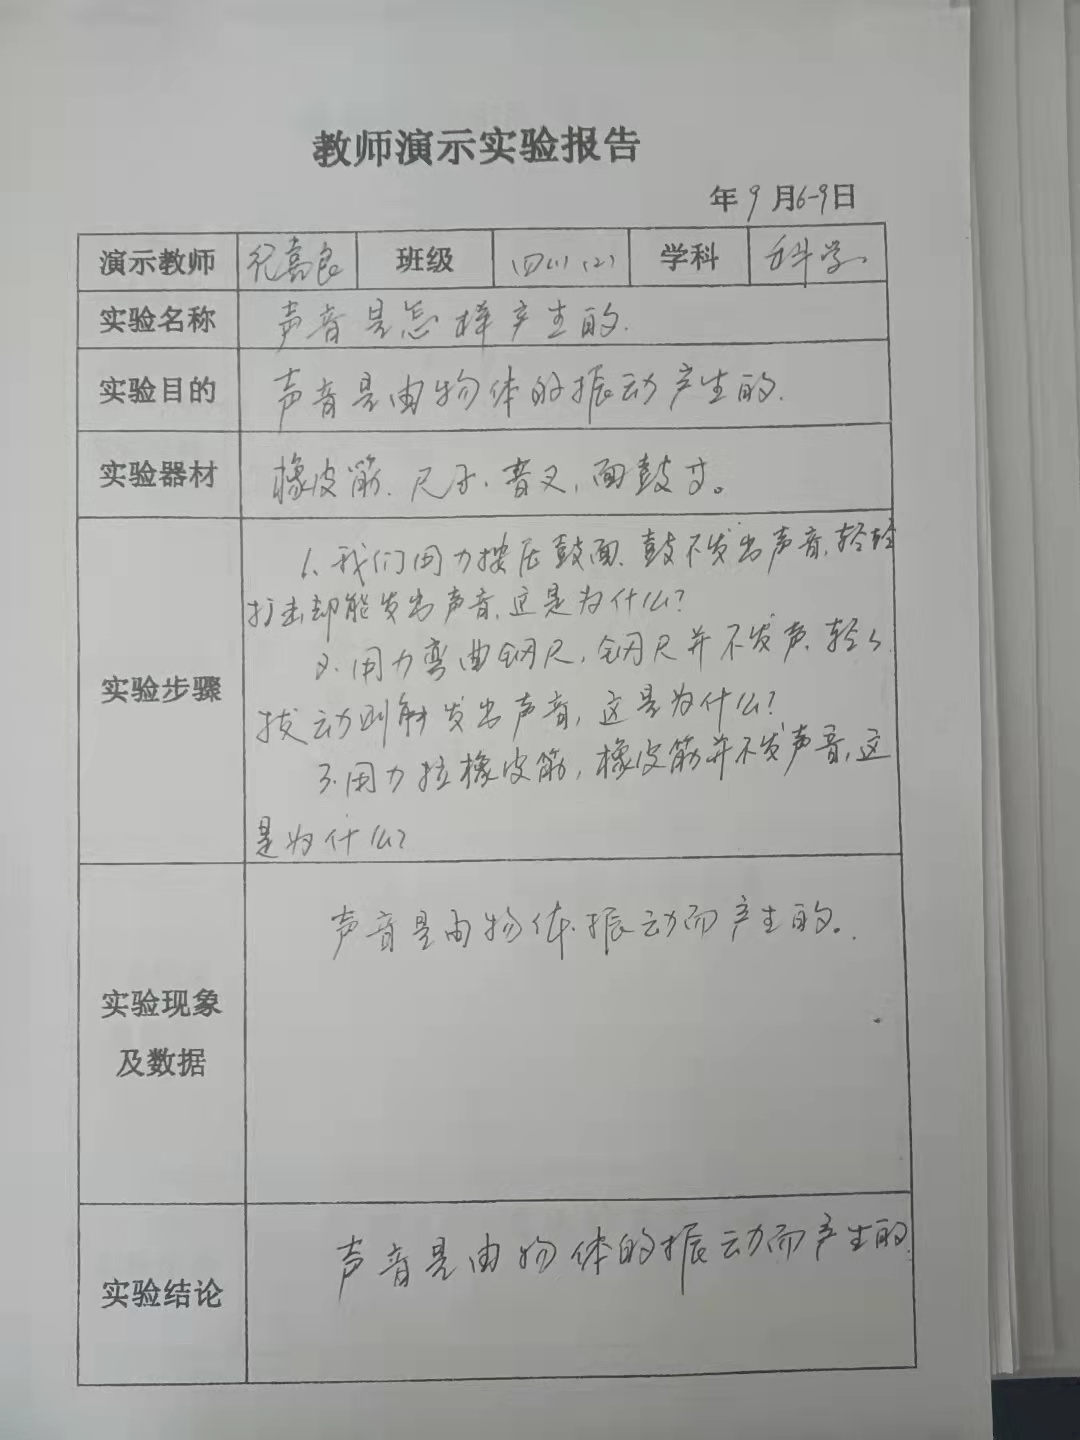 教师演示实验报告
年9月6-9日
演示教师 纪嘉良 班级 四(1)(2) 学科 科学
实验名称 声音是怎样产生的.
实验目的 声音是由物体的振动产生的.
实验器材 橡皮筋、尺子、音叉,面鼓寸。
1、我们用力按压鼓面、鼓不发出声音,轻轻
打击却能发出声音,这是为什么?
2、用力弯曲钢尺,钢尺并不发声、轻轻
实验步骤
拨动则能发出声音,这是为什么?
3、用力拉橡皮筋,橡皮筋并不发声音,这
是为什么?
声音是由物体振动而产生的。
实验现象
及数据
声音是由物体的振动而产生的
实验结论